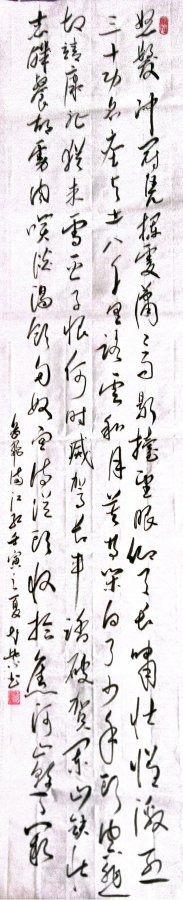 怒髮冲冠凭栏处潇潇雨歇抬望眼仰天长啸壮怀激烈
三十功名尘与土八千里路云和月莫等闲白了少年头空悲
切靖康耻犹未雪臣子恨何时灭驾长车踏破贺兰山缺壮
志饥餐胡虏肉笑谈渴饮匈奴血待从头收拾旧河山朝天阙
岳飛满江红壬寅之夏书